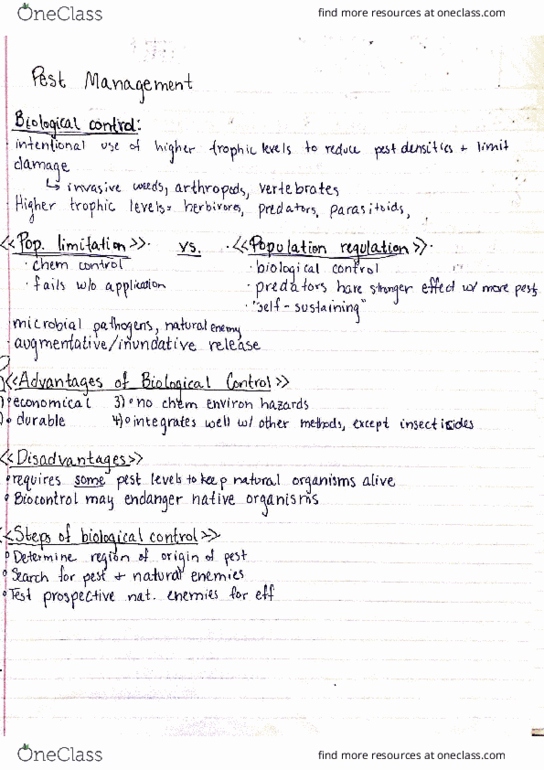 OneClass find more resources at oneclass.com
Pest Management
Biological control:
intentional use of higher trophic levels to reduce pest densities + limit
damage
↳ invasive weeds, arthropods, vertebrates
Higher trophic levels= herbivores, predators, parasitoids,
<<Pop. limitation>> vs. <<Population regulation>>
· chem control · biological control
· fails w/o application · predators have stronger effect w/ more pests
· "self-sustaining"
microbial pathogens, natural enemy
augmentative/inundative release
<<Advantages of Biological Control>>
1) • economical 3) • no chem environ hazards
• durable 4) • integrates well w/ other methods, except insecticides
<<Disadvantages>>
• requires some pest levels to keep natural organisms alive
• Biocontrol may endanger native organisms
<<Steps of biological control>>
• Determine region of origin of pest
• Search for pest + natural enemies
• Test prospective nat. enemies for eff
OneClass find more resources at oneclass.com